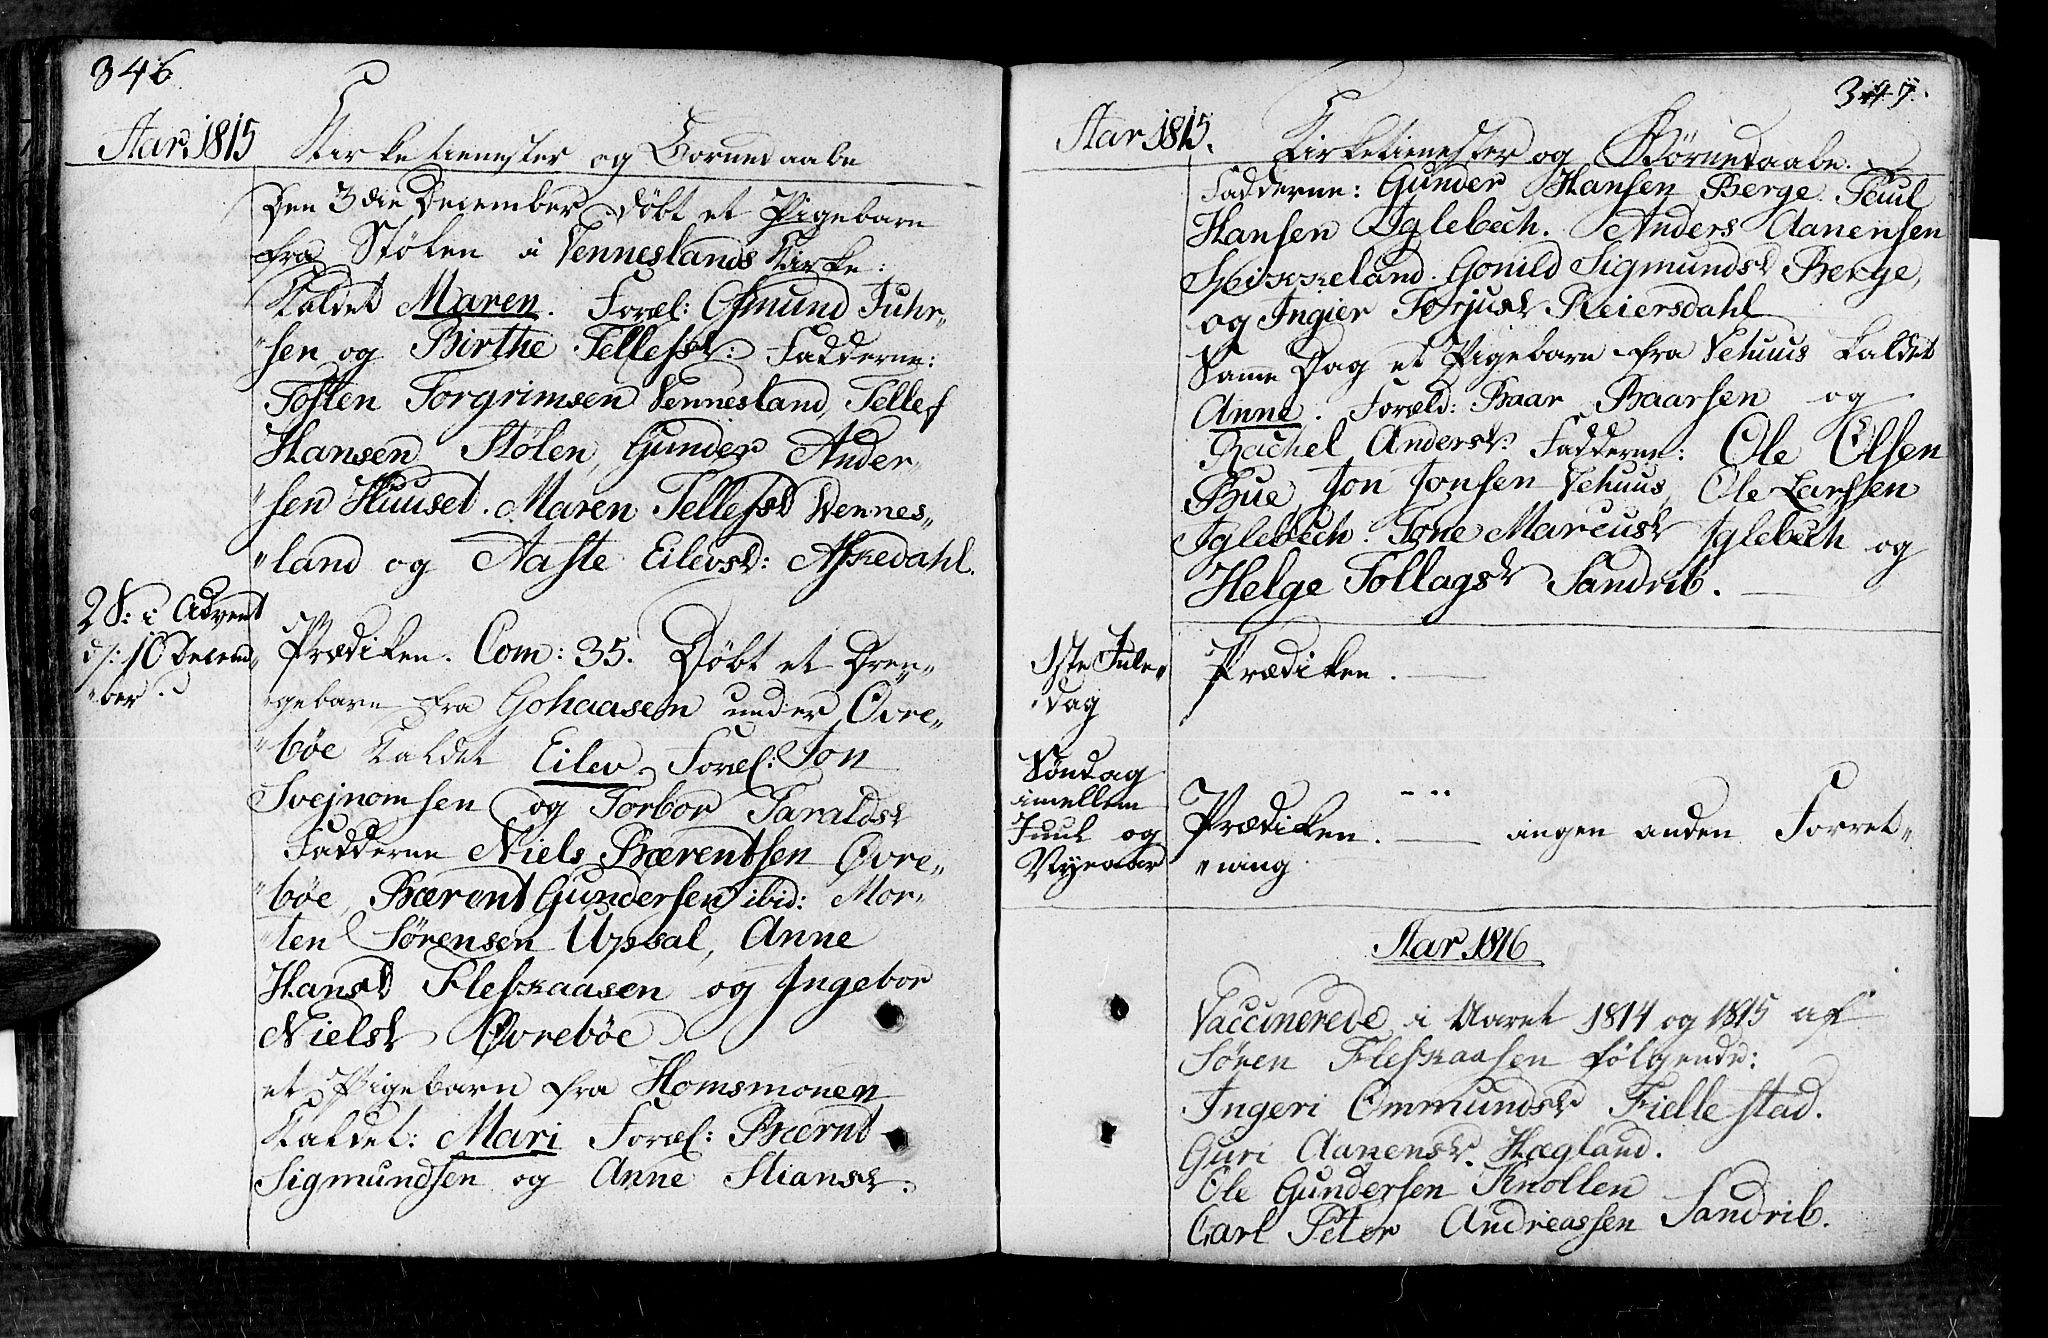 346
Aar, 1815 Kirketienester og Børnedaabe
Den 3die December døbt et Pigebarn
fra Stølen i Venneslands Kirke:
Kaldet Maren. Foræl: Osmund Juhr-
"sen og Birthe Tellefsd: Fadderne:
Tosten Torgrimsen Vennesland, Tellef
Hansen Stølen, Gunder Ander-
"sen Huuset. Maren Tellefsd Vennes-
"land og Aaste Eilevsd: Askedahl.
2 S: i Advent
d: 10 Decem-
"ber.
Prædiken. Com: 35. Døbt et Dren-
"gebarn fra Gohaasen under Øvre-
"bøe Kaldet Eilev. Foræl: Jon
Svejnomsen og Torbor Taraldsd
Fadderne Niels Bærentsen Øvre-
"bøe, Bærent Gundersen ibid: Mor-
"ten Sørensen Upsal, Anne
Hansd Fleskaasen og Ingebor
Nielsd Øvrebøe
et Pigebarn fra Homsmonen
Kaldet: Mari Foræl: Bærnt
Sigmundsen og Anne Stiansd:
347.
Aar, 1815. Kirketienester og Børnedaabe.
Fadderne: Gunder Hansen Berge. Paul
Hansen Iglebech. Anders Aanensen
Gonild Sigmundsd Berge,
og Ingier Torjusd Reiersdahl
Samme Dag et Pigebarn fra Vehuus Kaldet
Anne. Foræld: Baar Baarsen og
Rachel Andersd: Fadderne: Ole Olsen
Bue, Jon Jonsen Vehuus, Ole Larssen
Iglebech. Tone Marcusd Iglebech og
Helge Tollagsd Sandrib.
1ste Jule-
"dag
Prædiken.
Søndag
imellem
Juul og
Nyeaar
Prædiken. ingen anden Forret-
"ning.
Aar, 1816
Vaccinerede i Aaret 1814 og 1815 af
Søren Fleskaasen følgende:
Ingeri Ommundsd Fiellestad.
Guri Aanensd. Hægland.
Ole Gundersen Knollen
Carl Peter Andreassen Sandrib.